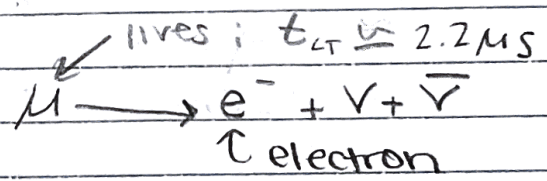 lives ; t_LT ≃ 2.2 μs
μ ⟶ e⁻ + ν + ν̅
↑ electron